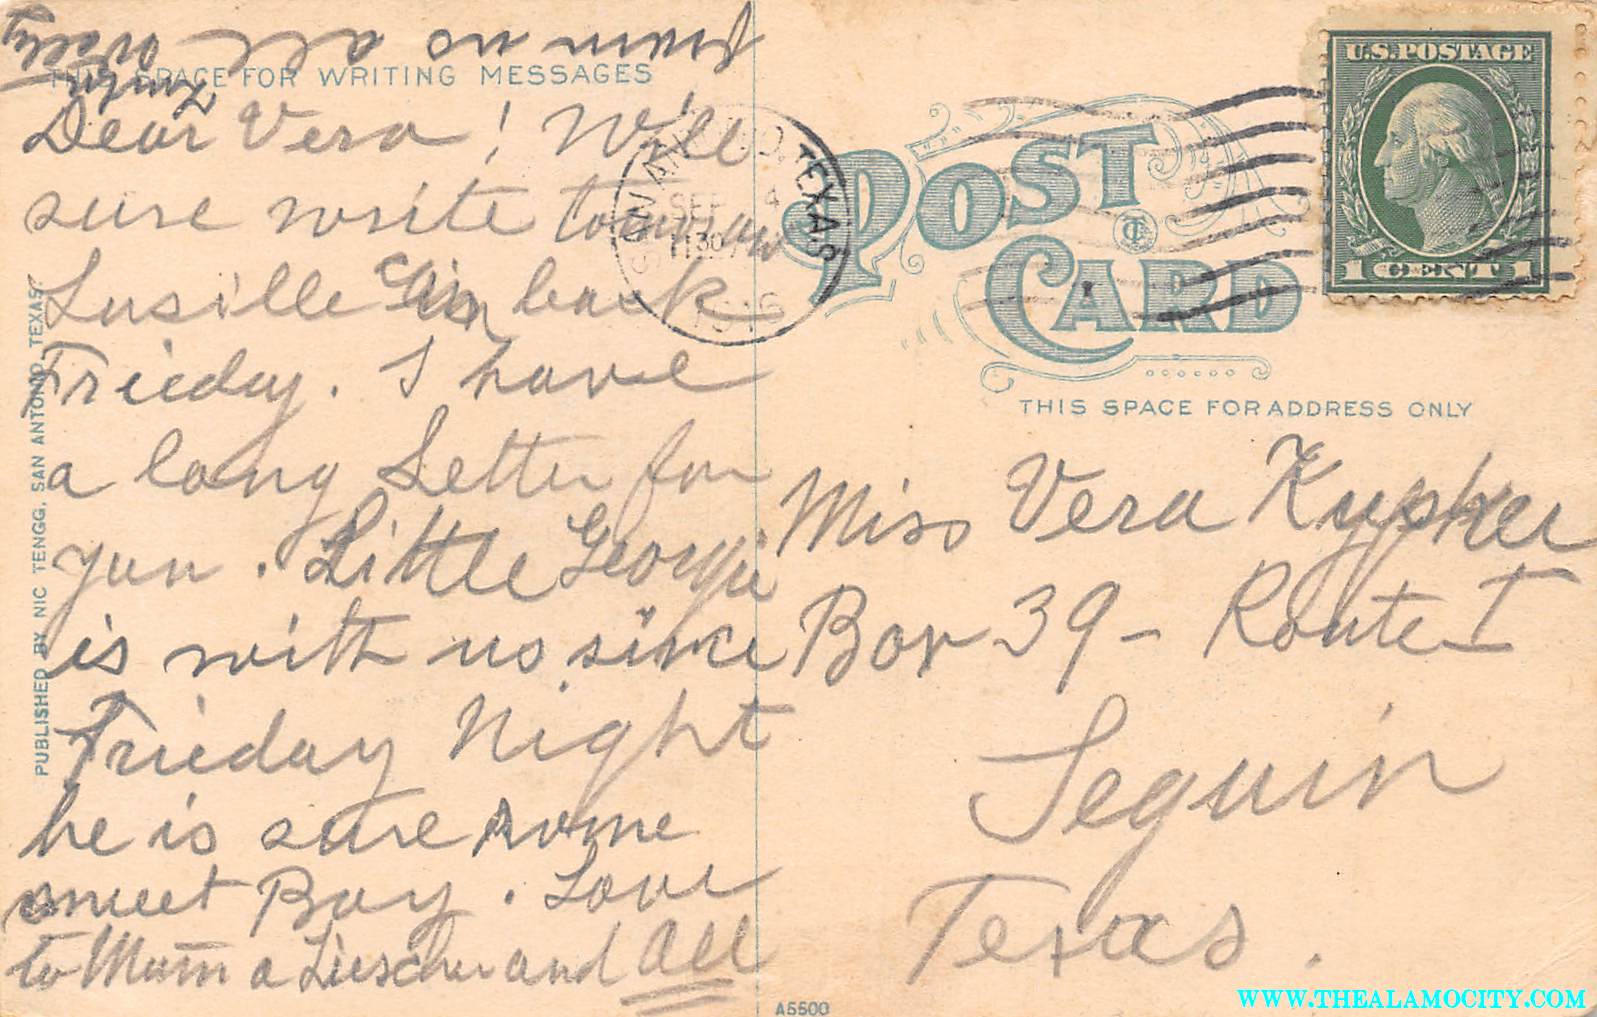 THIS SPACE FOR WRITING MESSAGES
Dear Vera! Will
sure write tomorow
Lusille is back
Frieday. I have
a long Letter for
you. Little Georgie
is with us since
Frieday Night
he is sure some
sweet Boy. Love
to Mum a Lieschen and All
from us all
Tante Dolly
PUBLISHED BY NIC TENGG, SAN ANTONIO, TEXAS.
SAN ANTONIO, TEXAS
SEP 4
1130
1916
POST CARD
U.S. POSTAGE
1 CENT 1
THIS SPACE FOR ADDRESS ONLY
Miss Vera
Box 39 - Route 1
Seguin
Texas.
A5500
WWW.THEALAMOCITY.COM